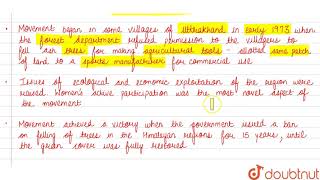 Movement began in some villages of Uttarakhand in early 1973 when
the forest department refused permission to the villagers to
fell ash trees for making agricultural tools - allotted same patch
of land to a sports manufacturer for commercial use.
Issues of ecological and economic exploitation of the region were
raised. Women's active participation was the most novel aspect of
the movement.
Movement achieved a victory when the government issued a ban
on felling of trees in the Himalayan regions for 15 years, until
the green cover was fully restored.
doubtnut